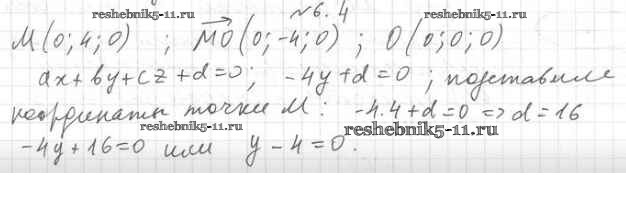 №6.4
reshebnik5-11.ru reshebnik5-11.ru
M(0;4;0) ; MO(0;-4;0) ; O(0;0;0)
ax+by+cz+d=0; -4y+d=0 ; подставим
reshebnik5-11.ru
координаты точки M: -4·4+d=0 => d=16
reshebnik5-11.ru reshebnik5-11.ru
-4y+16=0 или y-4=0.